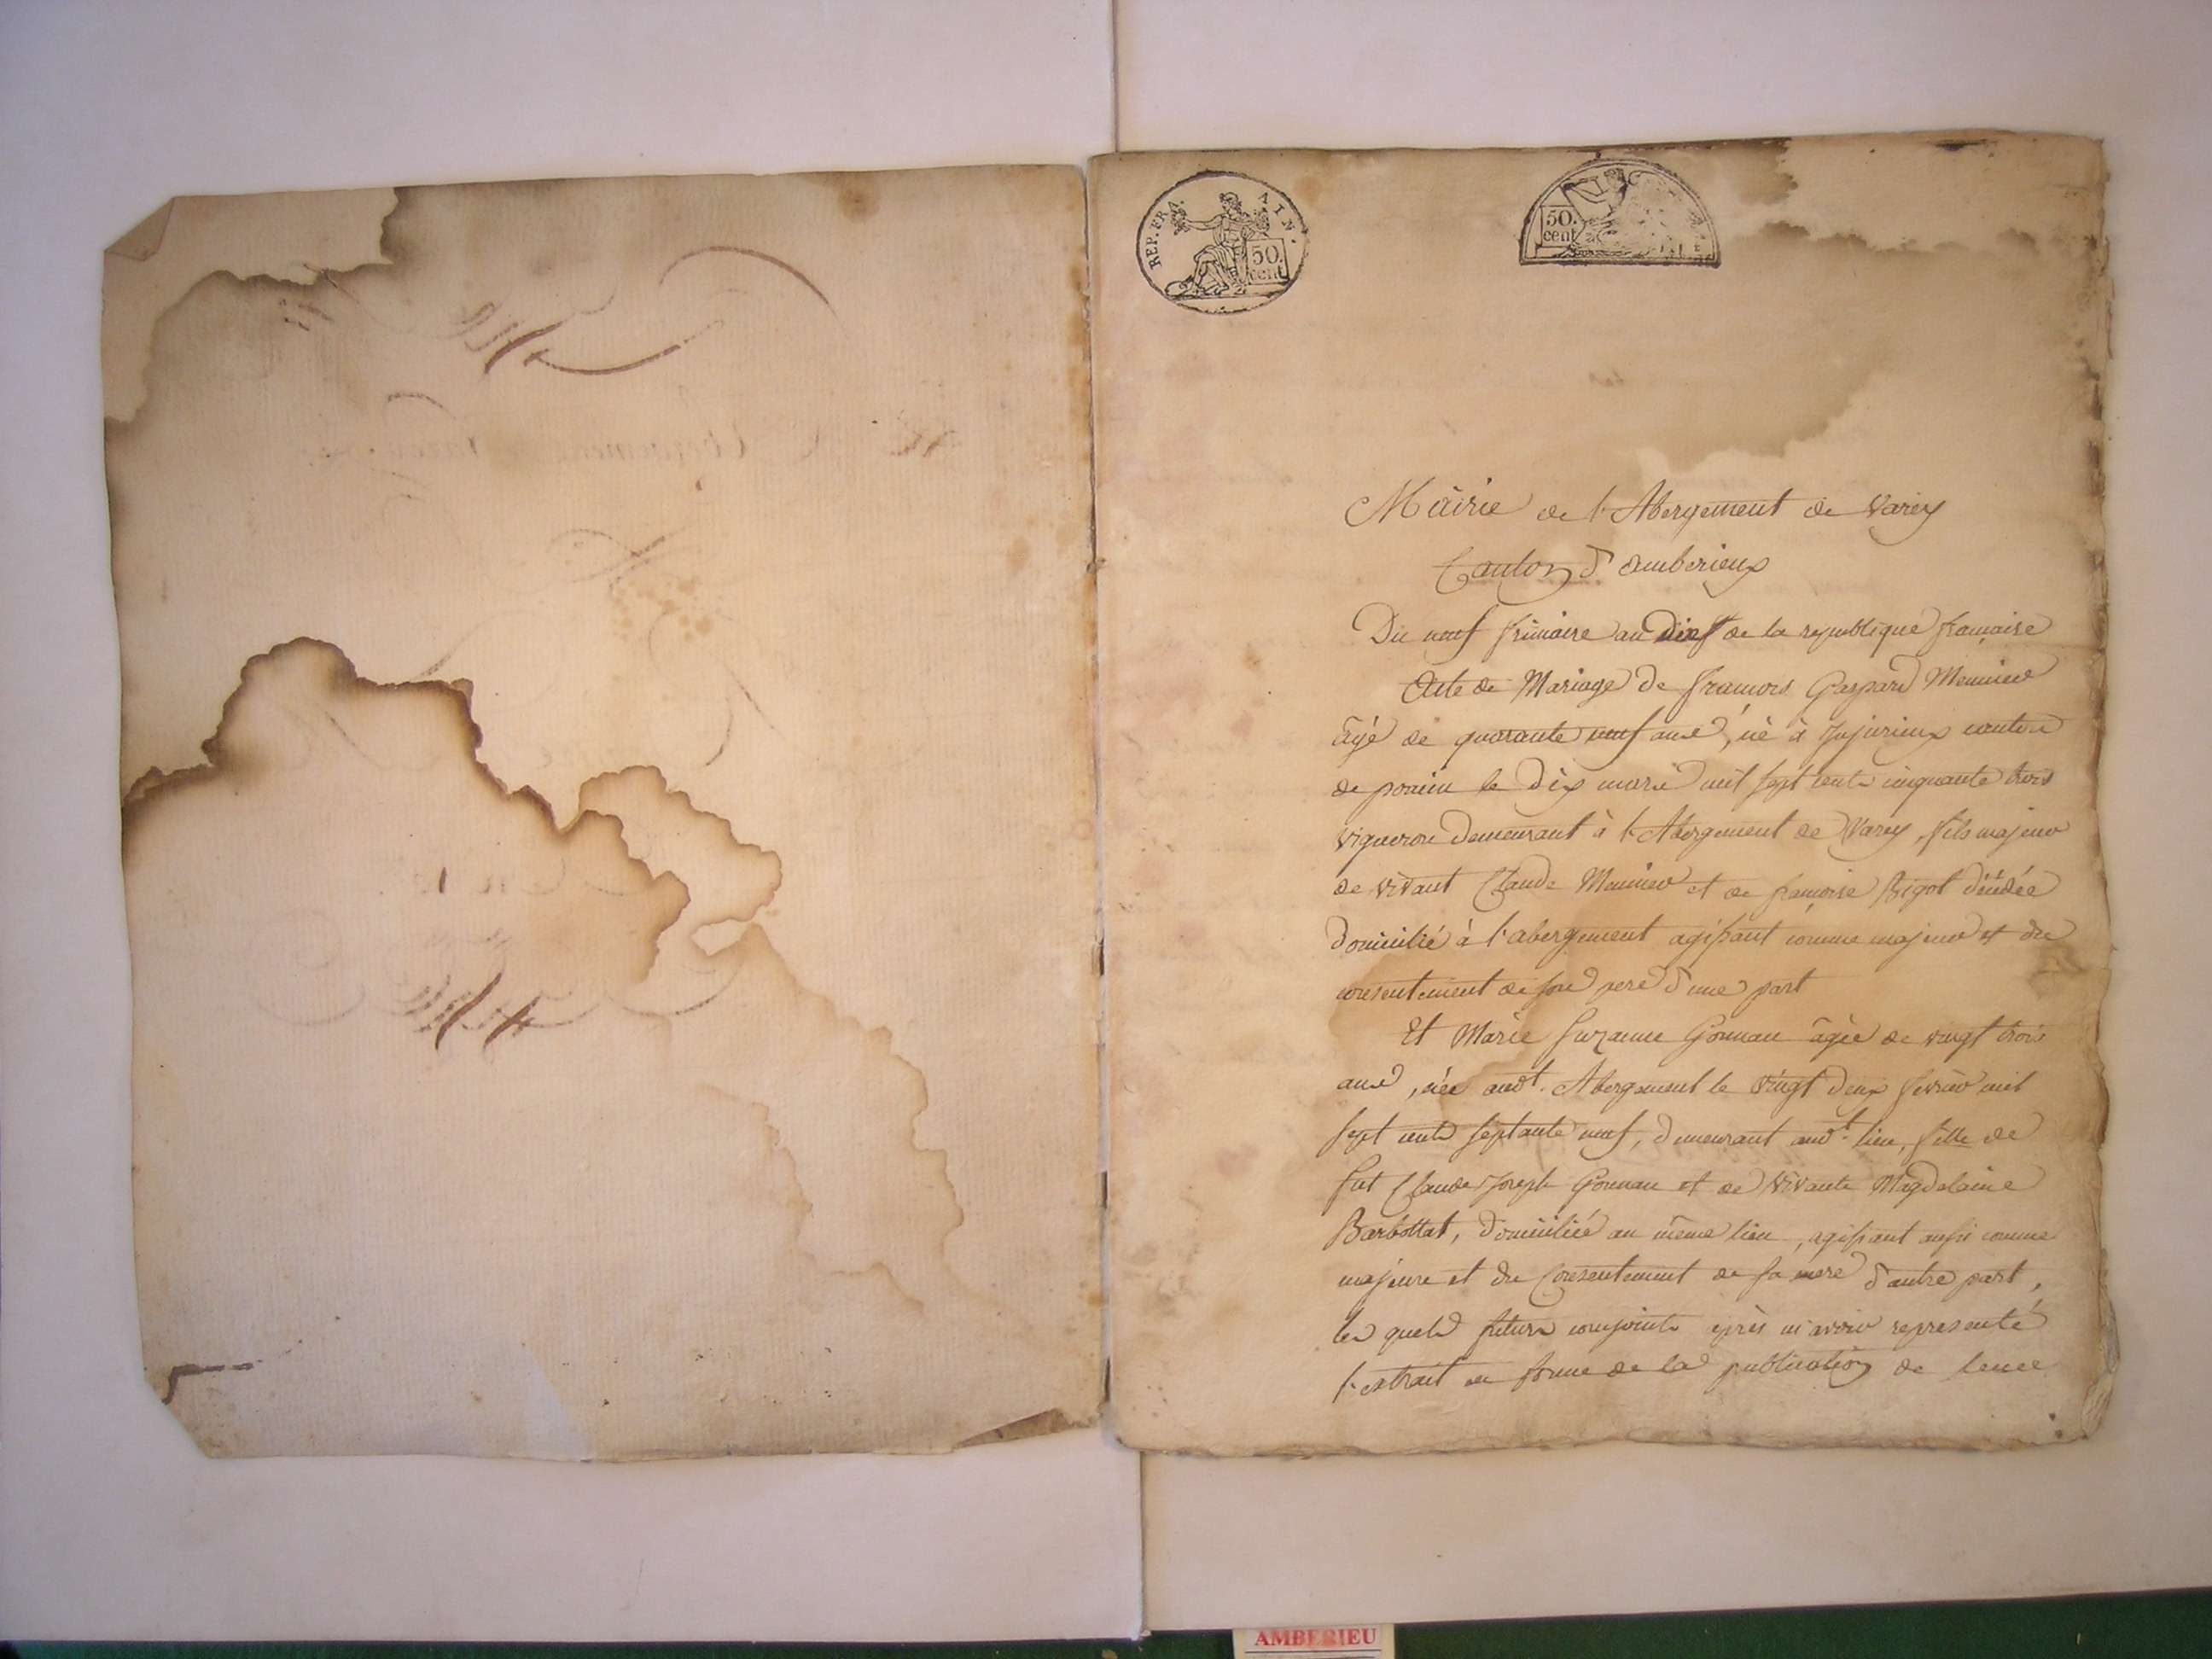 REP. FRA. AIN.
50. cent
50. cent
Mairie de l'Abergement de Varey
Canton d'amberieux
Du neuf frimaire an dix de la republique francaise
Acte de Mariage de francois Gaspard Meunier
âgé de quarante neuf ans, né à Jujurieux canton
de poncin le dix mars mil sept cents cinquante trois
vigneron demeurant à l'Abergement de Varey, fils majeur
de vivant Claude Meunier et de francoise Bigot décédée
domicilié à l'abergement agissant comme majeur et du
consentement de son pere d'une part
Et Marie Suzanne Gonnau âgée de vingt trois
ans, née audt. Abergement le vingt deux fevrier mil
sept cents septante neuf, demeurant audt. lieu, fille de
fut Claude Joseph Gonnau et de vivante Magdelaine
Barbottat, domiciliée au même lieu, agissant aussi comme
majeure et du consentement de sa mere d'autre part,
les quels futurs conjoints après m'avoir representé
l'extrait en forme de la publication de leurs
AMBERIEU